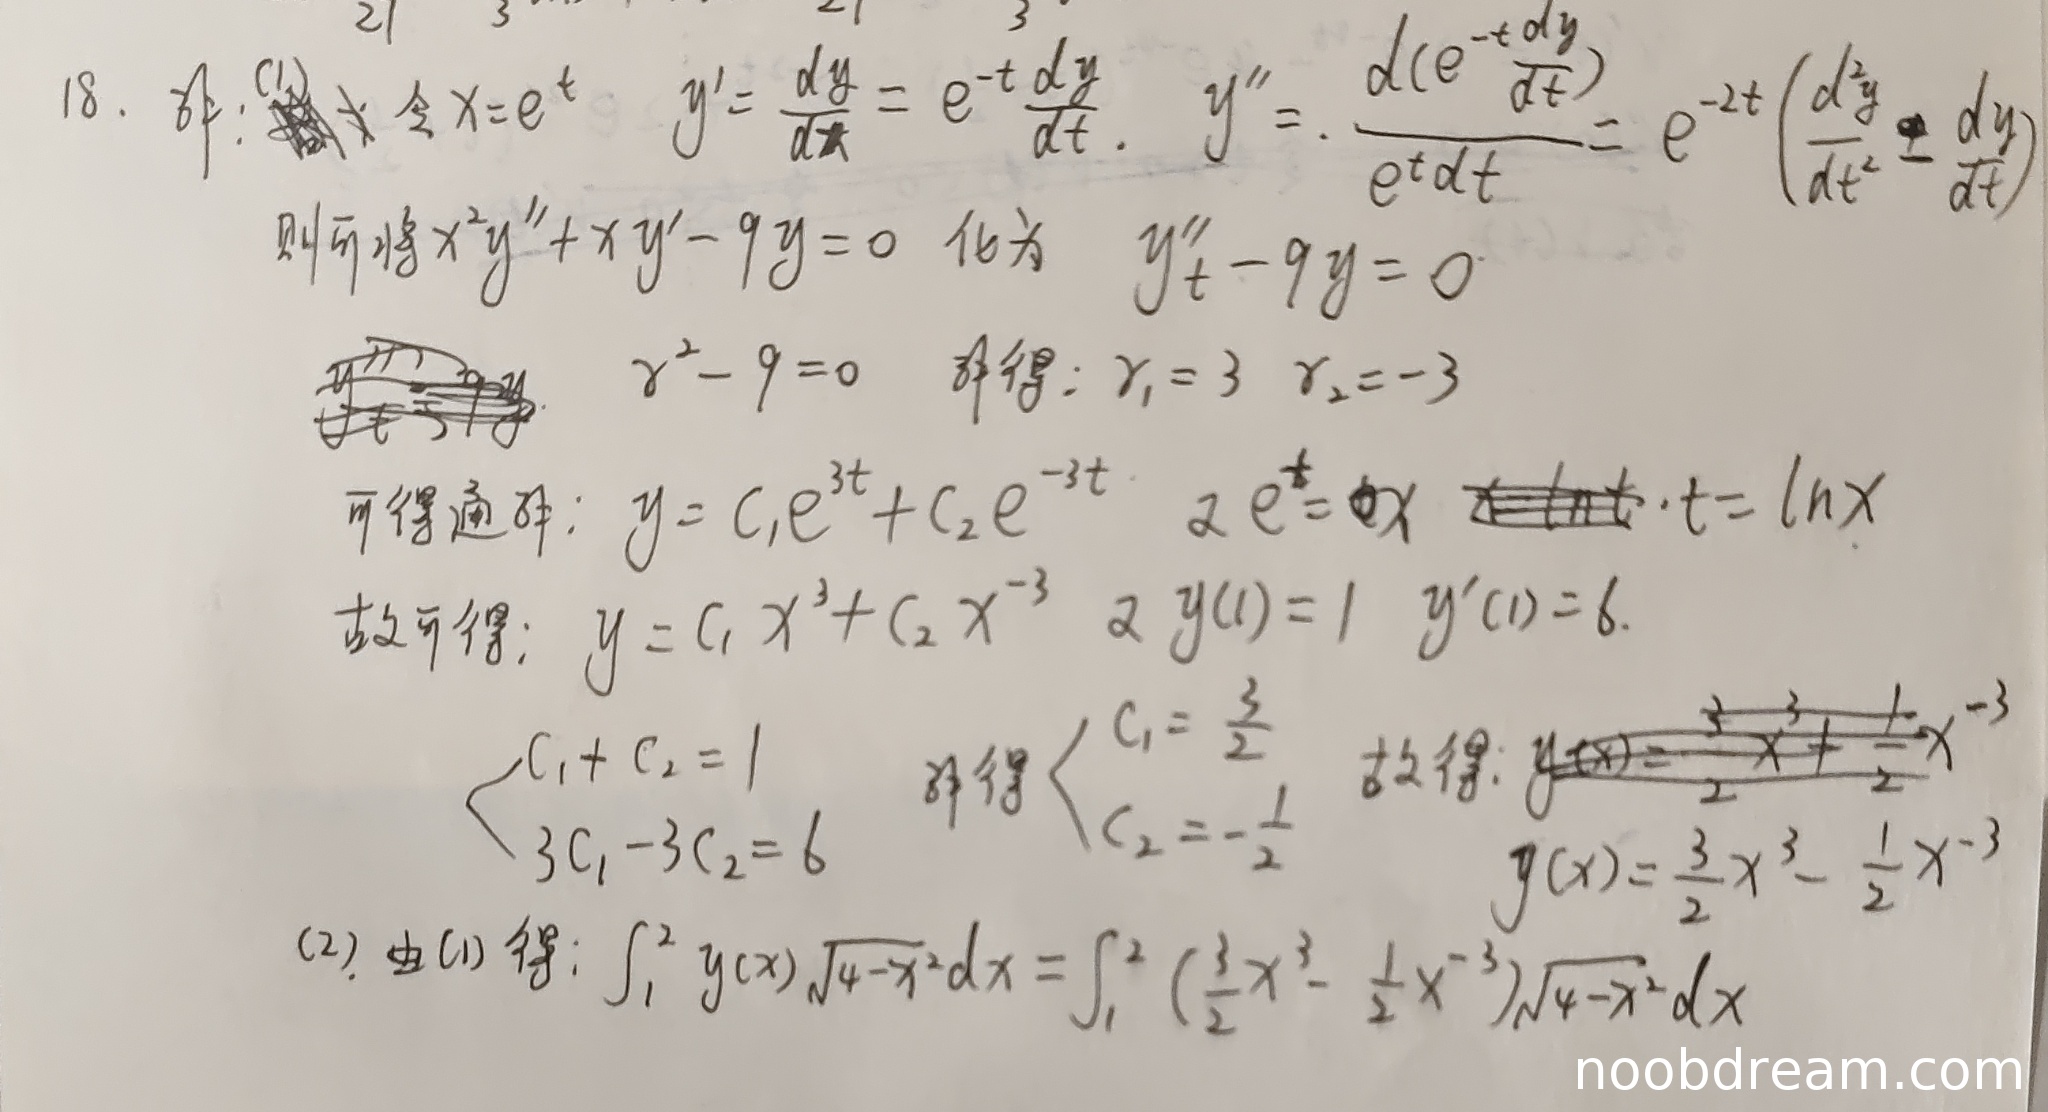 18. 解: (1) 令 x=e^t y' = dy/dx = e^{-t} dy/dt. y'' = d(e^{-t} dy/dt) / e^t dt = e^{-2t} (d²y/dt² - dy/dt)
则可将 x²y''+xy'-9y=0 化为 y''_t -9y=0
r²-9=0 解得: r₁=3 r₂=-3
可得通解: y=C₁e^{3t}+C₂e^{-3t} 又 e^t=x t=lnx
故可得: y=C₁x³+C₂x^{-3} 又 y(1)=1 y'(1)=6.
C₁+C₂=1 解得 C₁=3/2 故得:
3C₁-3C₂=6 C₂=-1/2 y(x)=3/2 x³- 1/2 x^{-3}
(2). 由(1)得: ∫₁² y(x)√(4-x²)dx = ∫₁² (3/2 x³- 1/2 x^{-3})√(4-x²)dx
noobdream.com